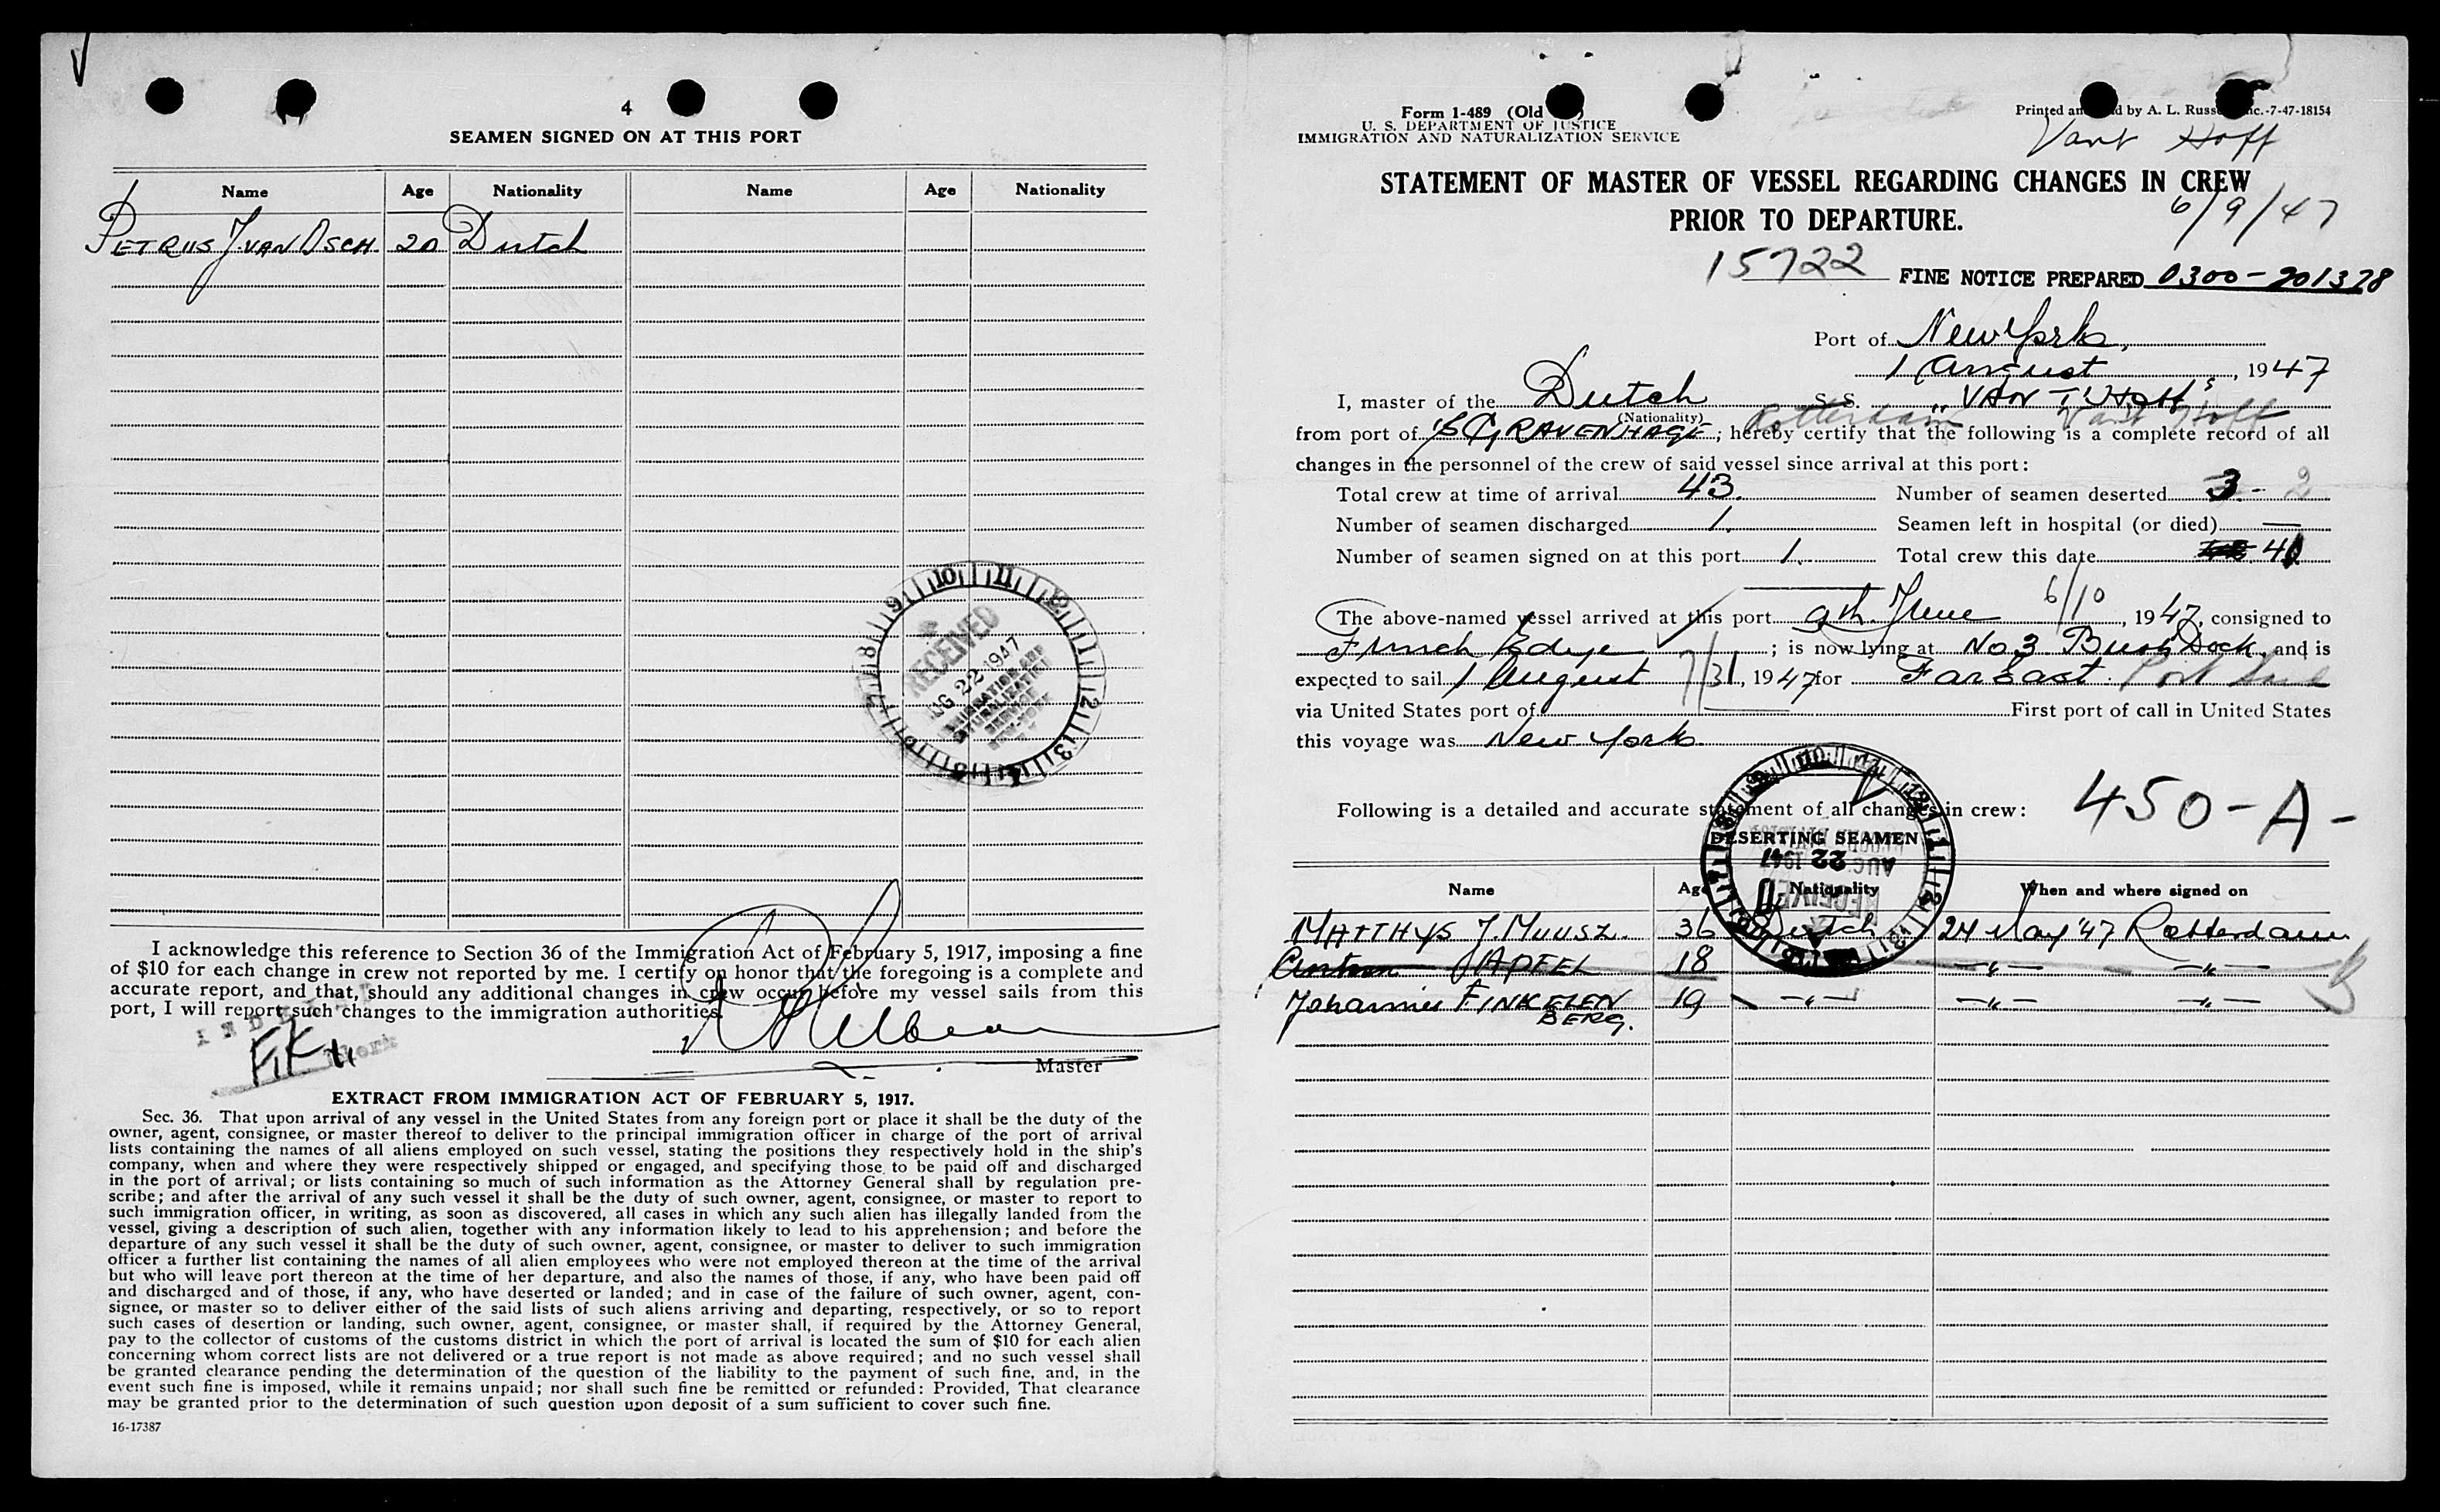 4
SEAMEN SIGNED ON AT THIS PORT
Name Age Nationality Name Age Nationality
PETRUS J. VAN OSCH 20 Dutch
RECEIVED
AUG 22 1947
IMMIGRATION AND
NATURALIZATION
SERVICE
I acknowledge this reference to Section 36 of the Immigration Act of February 5, 1917, imposing a fine
of $10 for each change in crew not reported by me. I certify on honor that the foregoing is a complete and
accurate report, and that, should any additional changes in crew occur before my vessel sails from this
port, I will report such changes to the immigration authorities.
Master
EXTRACT FROM IMMIGRATION ACT OF FEBRUARY 5, 1917.
Sec. 36. That upon arrival of any vessel in the United States from any foreign port or place it shall be the duty of the
owner, agent, consignee, or master thereof to deliver to the principal immigration officer in charge of the port of arrival
lists containing the names of all aliens employed on such vessel, stating the positions they respectively hold in the ship's
company, when and where they were respectively shipped or engaged, and specifying those to be paid off and discharged
in the port of arrival; or lists containing so much of such information as the Attorney General shall by regulation pre-
scribe; and after the arrival of any such vessel it shall be the duty of such owner, agent, consignee, or master to report to
such immigration officer, in writing, as soon as discovered, all cases in which any such alien has illegally landed from the
vessel, giving a description of such alien, together with any information likely to lead to his apprehension; and before the
departure of any such vessel it shall be the duty of such owner, agent, consignee, or master to deliver to such immigration
officer a further list containing the names of all alien employees who were not employed thereon at the time of the arrival
but who will leave port thereon at the time of her departure, and also the names of those, if any, who have been paid off
and discharged and of those, if any, who have deserted or landed; and in case of the failure of such owner, agent, con-
signee, or master so to deliver either of the said lists of such aliens arriving and departing, respectively, or so to report
such cases of desertion or landing, such owner, agent, consignee, or master shall, if required by the Attorney General,
pay to the collector of customs of the customs district in which the port of arrival is located the sum of $10 for each alien
concerning whom correct lists are not delivered or a true report is not made as above required; and no such vessel shall
be granted clearance pending the determination of the question of the liability to the payment of such fine, and, in the
event such fine is imposed, while it remains unpaid; nor shall such fine be remitted or refunded: Provided, That clearance
may be granted prior to the determination of such question upon deposit of a sum sufficient to cover such fine.
16-17387
Form I-489 (Old
U. S. DEPARTMENT OF JUSTICE
IMMIGRATION AND NATURALIZATION SERVICE
Printed by A. L. -7-47-18154
Vant Hoff
STATEMENT OF MASTER OF VESSEL REGARDING CHANGES IN CREW
PRIOR TO DEPARTURE.
6/9/47
15722 FINE NOTICE PREPARED 0300-201328
Port of New York,
1 August, 1947
I, master of the Dutch S.S. "VAN 'T HOFF"
(Nationality) Rotterdam Vant Hoff
from port of 'S GRAVENHAGE; hereby certify that the following is a complete record of all
changes in the personnel of the crew of said vessel since arrival at this port:
Total crew at time of arrival 43. Number of seamen deserted 3 - 2
Number of seamen discharged 1. Seamen left in hospital (or died) —
Number of seamen signed on at this port 1. Total crew this date
The above-named vessel arrived at this port 9th June 6/10, 1947, consigned to
French Edye; is now lying at No 3 Bush Dock, and is
expected to sail 1 August 7/31, 1947 for Far East. Port
via United States port of First port of call in United States
this voyage was New York.
Following is a detailed and accurate statement of all changes in crew: 450-A-
DESERTING SEAMEN
AUG 22 1947
RECEIVED
Name Age Nationality When and where signed on
MATTHYS J. MUUSZ. 36 Dutch 24 May '47 Rotterdam
APFEL 18 —"— —"—
Johannes FINKELEN 19 —"— —"— —"—
BERG.